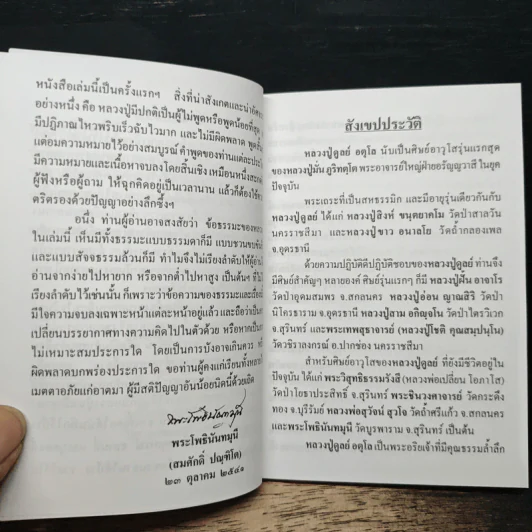 หนังสือเล่มนี้เป็นครั้งแรกๆ สิ่งที่น่าสังเกตและน่าอัศ
อย่างหนึ่ง คือ หลวงปู่มีปกติเป็นผู้ไม่พูดหรือพูดน้อยที่สุด
มีปฏิภาณไหวพริบเร็วฉับไวมาก และไม่มีผิดพลาด พูดสั้น
แต่อมความหมายไว้อย่างสมบูรณ์ คำพูดของท่านแต่ละประ
มีความหมายและเนื้อหาจบลงโดยสิ้นเชิง เหมือนหนึ่งสะกด
ผู้ฟังหรือผู้ถาม ให้ฉุกคิดอยู่เป็นเวลานาน แล้วก็ต้องใช้คว
ตริตรองด้วยปัญญาอย่างลึกซึ้งฯ
อนึ่ง ท่านผู้อ่านอาจสงสัยว่า ข้อธรรมะของหลว
ในเล่มนี้ เห็นมีทั้งธรรมะแบบธรรมดาก็มี แบบชวนขบขัน
และแบบสัจจธรรมล้วนก็มี ทำไมจึงไม่เรียงลำดับให้ผู้อ่าน
อ่านจากง่ายไปหายาก หรือจากต่ำไปหาสูง เป็นต้นฯ ที่ไม่
เรียงลำดับไว้เช่นนั้น ก็เพราะว่าข้อความของธรรมะและเรื่อง
มีใจความจบลงเฉพาะหน้าแต่ละหน้าอยู่แล้ว และถือว่าเป็นก
เปลี่ยนบรรยากาศทางความคิดไปในตัวด้วย หรือหากเป็นก
ไม่เหมาะสมประการใด โดยเป็นการบังอาจเกินควร หรือ
ผิดพลาดบกพร่องประการใด ขอท่านผู้คงแก่เรียนทั้งหลาย
เมตตาอภัยแก่อาตมา ผู้มีสติปัญญาอันน้อยนิดนี้ด้วยเถิด
พระโพธินันทมุนี
พระโพธินันทมุนี
(สมศักดิ์ ปณฺฑิโต)
๒๓ ตุลาคม ๒๕๔๑
สังเขปประวัติ
หลวงปู่ดูลย์ อตุโล นับเป็นศิษย์อาวุโสรุ่นแรกสุด
ของหลวงปู่มั่น ภูริทตฺโต พระอาจารย์ใหญ่ฝ่ายอรัญญวาสี ในยุค
ปัจจุบัน
พระเถระที่เป็นสหธรรมิก และมีอายุรุ่นเดียวกันกับ
หลวงปู่ดูลย์ ได้แก่ หลวงปู่สิงห์ ขนฺตยาคโม วัดป่าสาลวัน
นครราชสีมา และหลวงปู่ขาว อนาลโย วัดถ้ำกลองเพล
จ.อุดรธานี
ด้วยความปฏิบัติดีปฏิบัติชอบของหลวงปู่ดูลย์ ท่านจึง
มีศิษย์สำคัญๆ หลายองค์ ศิษย์รุ่นแรกๆ ก็มี หลวงปู่ฝั้น อาจาโร
วัดป่าอุดมสมพร จ.สกลนคร หลวงปู่อ่อน ญาณสิริ วัดป่า
นิโครธาราม จ.อุดรธานี หลวงปู่สาม อกิญฺจโน วัดป่าไตรวิเวก
จ.สุรินทร์ และพระเทพสุธาจารย์ (หลวงปู่โชติ คุณสมฺปนฺโน)
วัดวชิราลงกรณ์ อ.ปากช่อง นครราชสีมา
สำหรับศิษย์อาวุโสของหลวงปู่ดูลย์ ที่ยังมีชีวิตอยู่ใน
ปัจจุบัน ได้แก่ พระวิสุทธิธรรมรังสี (หลวงพ่อเปลี่ยน โอภาโส)
วัดป่าโยธาประสิทธิ์ จ.สุรินทร์ พระชินวงศาจารย์ วัดกระดึง
ทอง จ.บุรีรัมย์ หลวงพ่อสุวัจน์ สุวโจ วัดถ้ำศรีแก้ว จ.สกลนคร
และพระโพธินันทมุนี วัดบูรพาราม จ.สุรินทร์ เป็นต้น
หลวงปู่ดูลย์ อตุโล เป็นพระอริยเจ้าที่มีคุณธรรมล้ำลึก